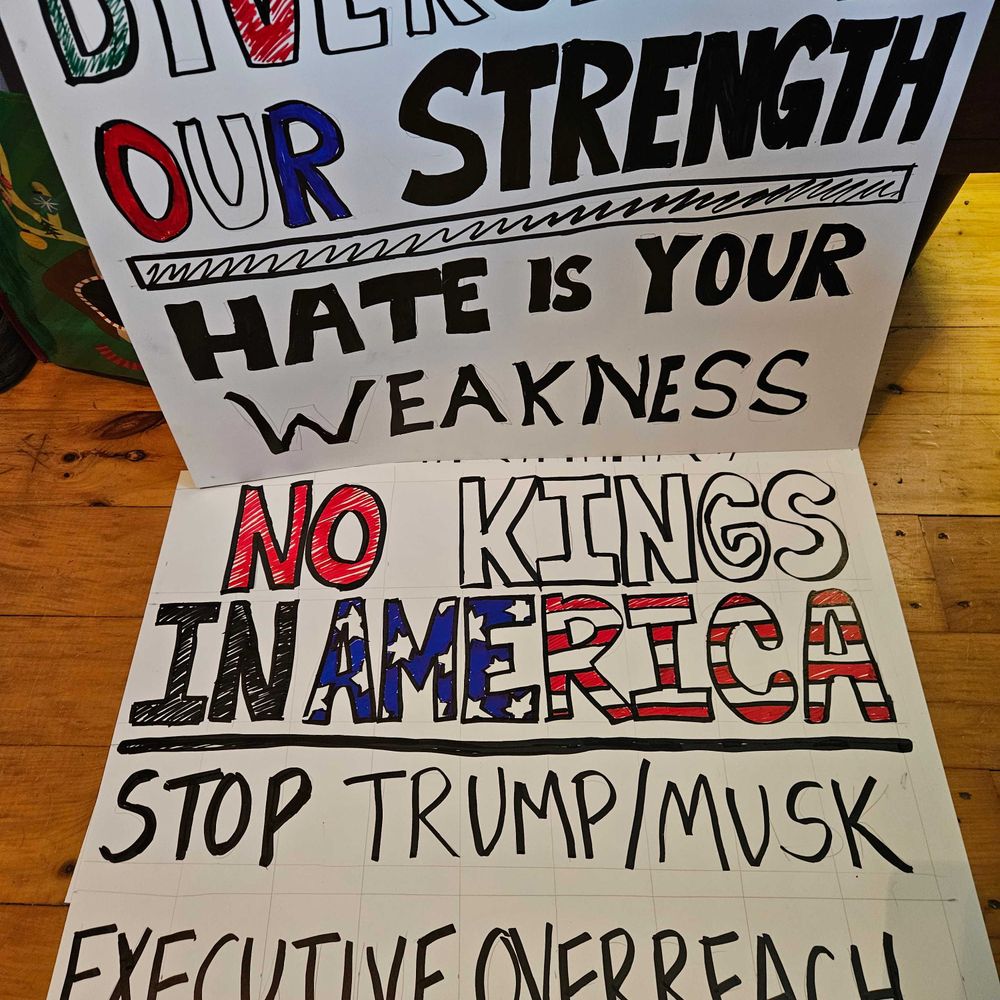 OUR STRENGTH
HATE IS YOUR
WEAKNESS
NO KINGS
IN AMERICA
STOP TRUMP/MUSK
EXECUTIVE OVERREACH